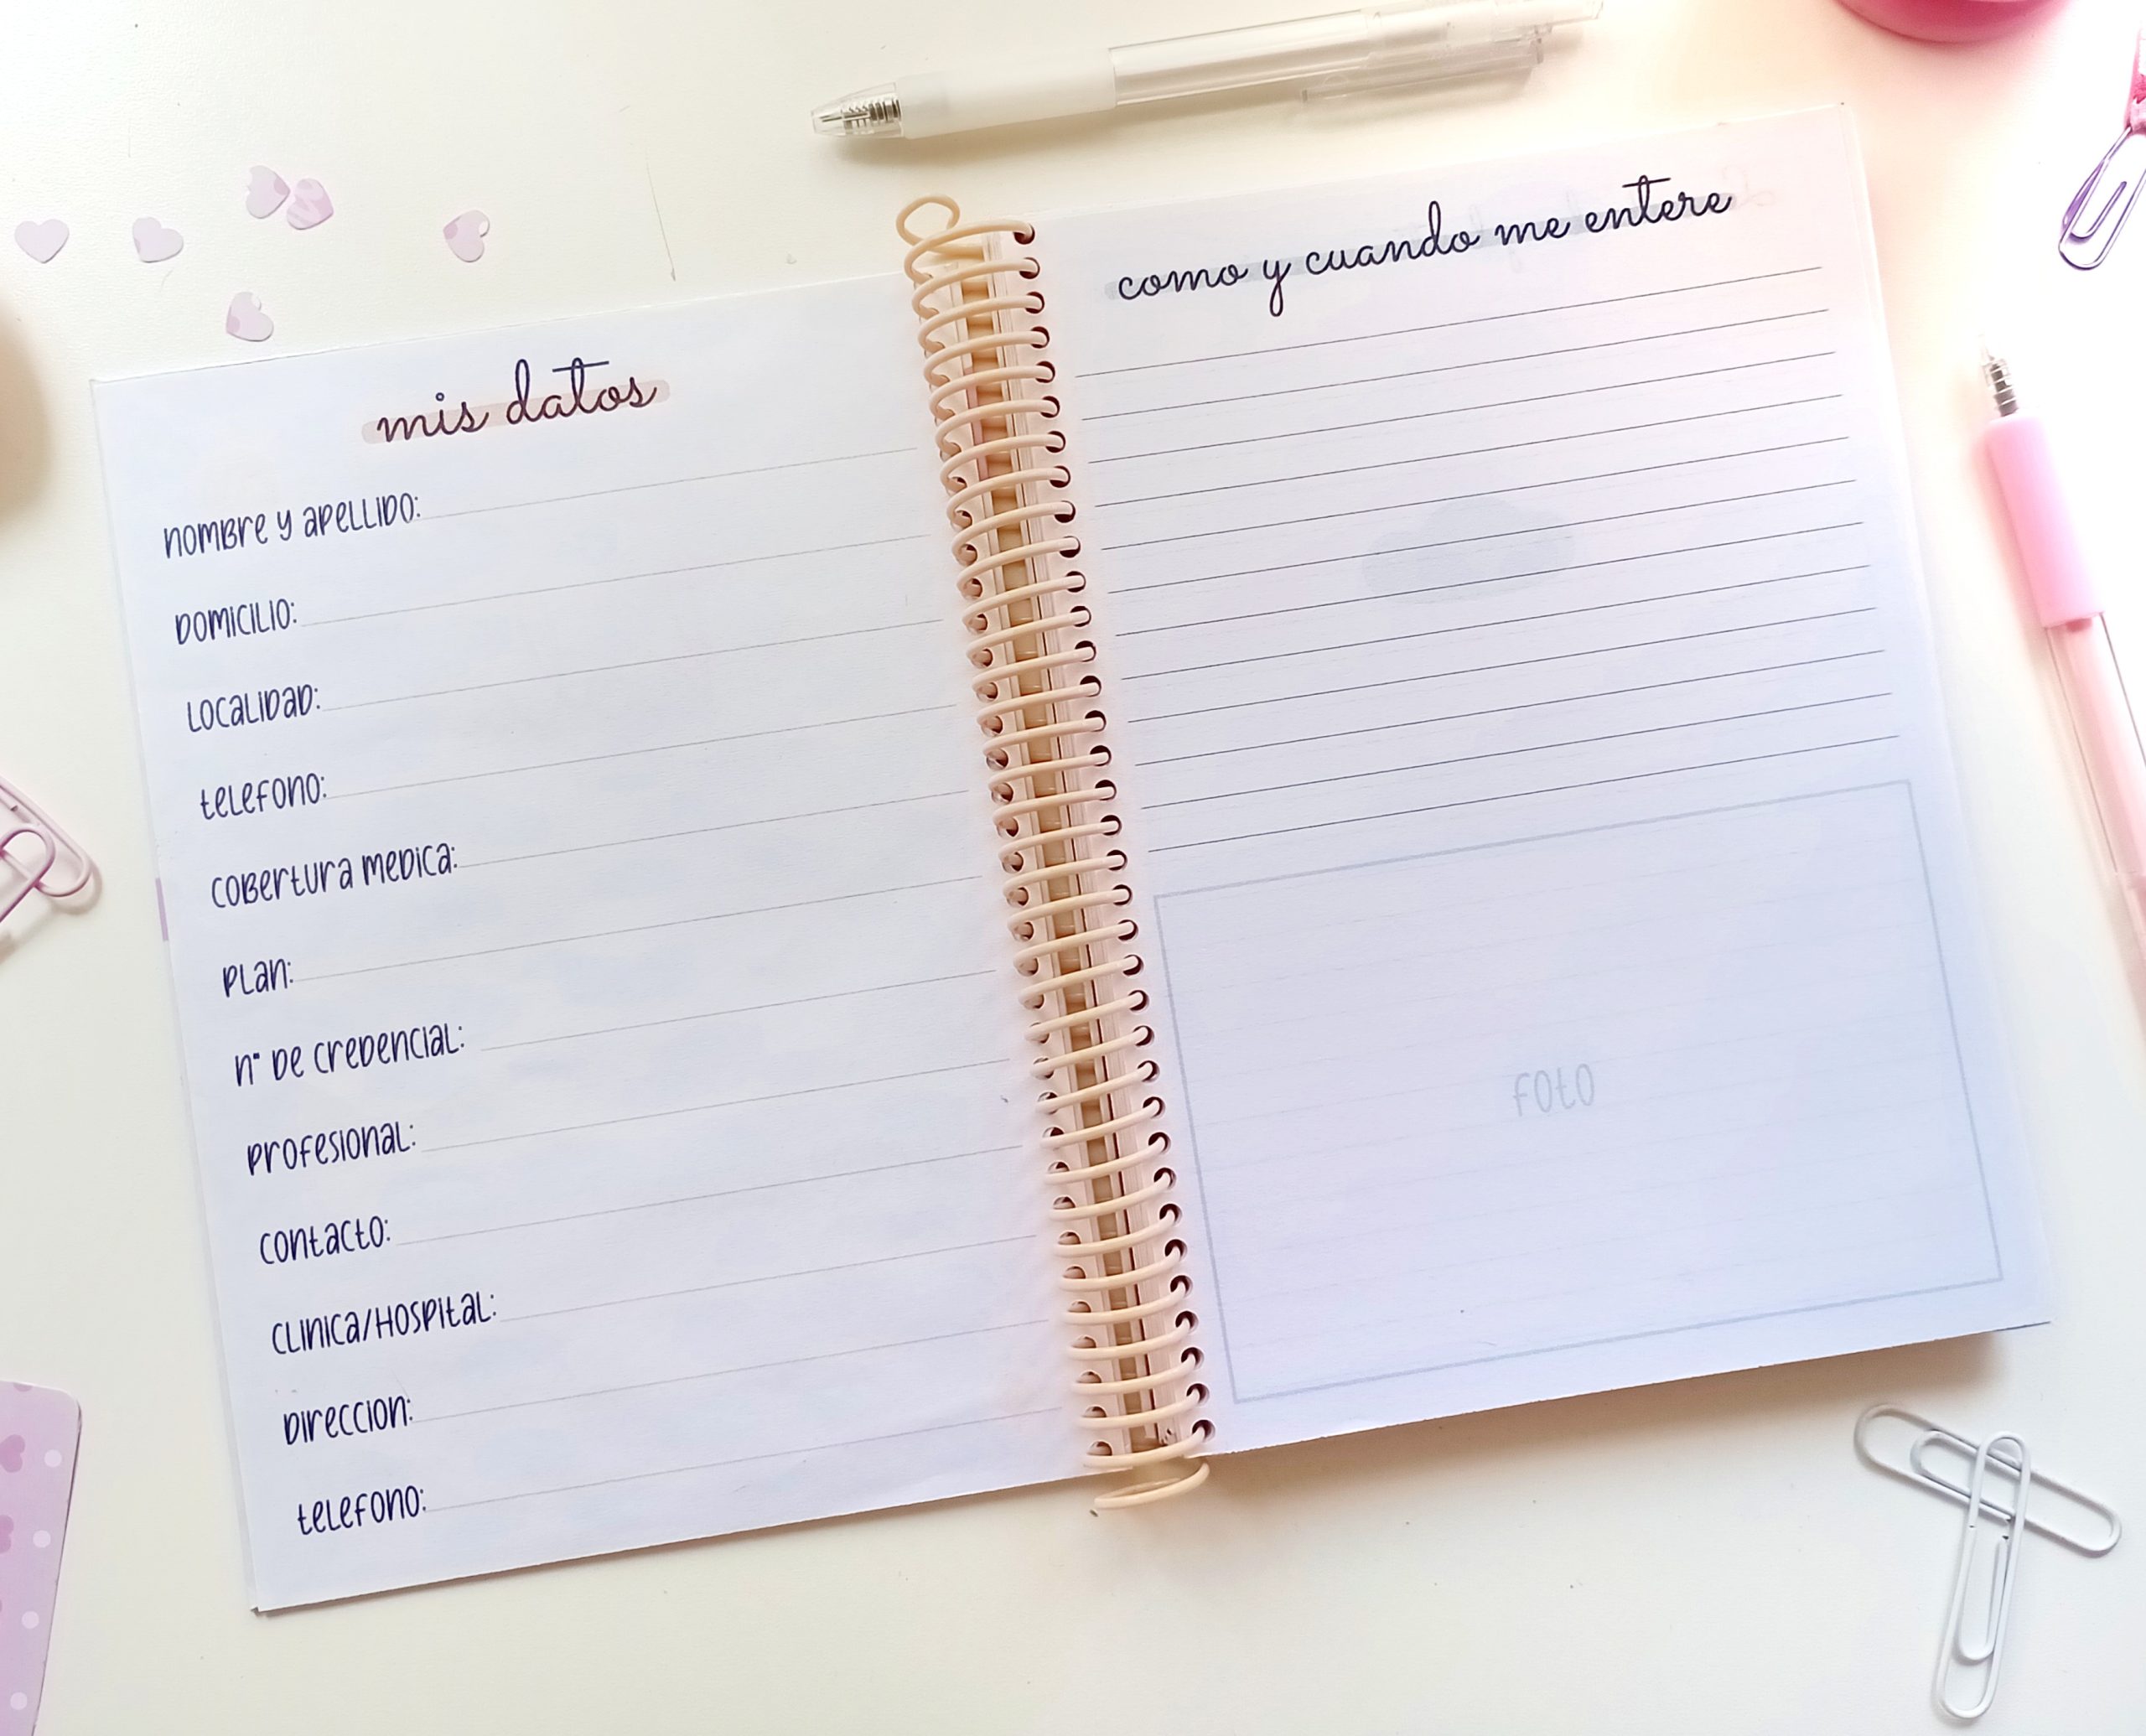 mis datos
nombre y apellido:
Domicilio:
Localidad:
telefono:
cobertura medica:
plan:
n° de credencial:
profesional:
contacto:
clinica/Hospital:
Direccion:
telefono:
como y cuando me entere
foto